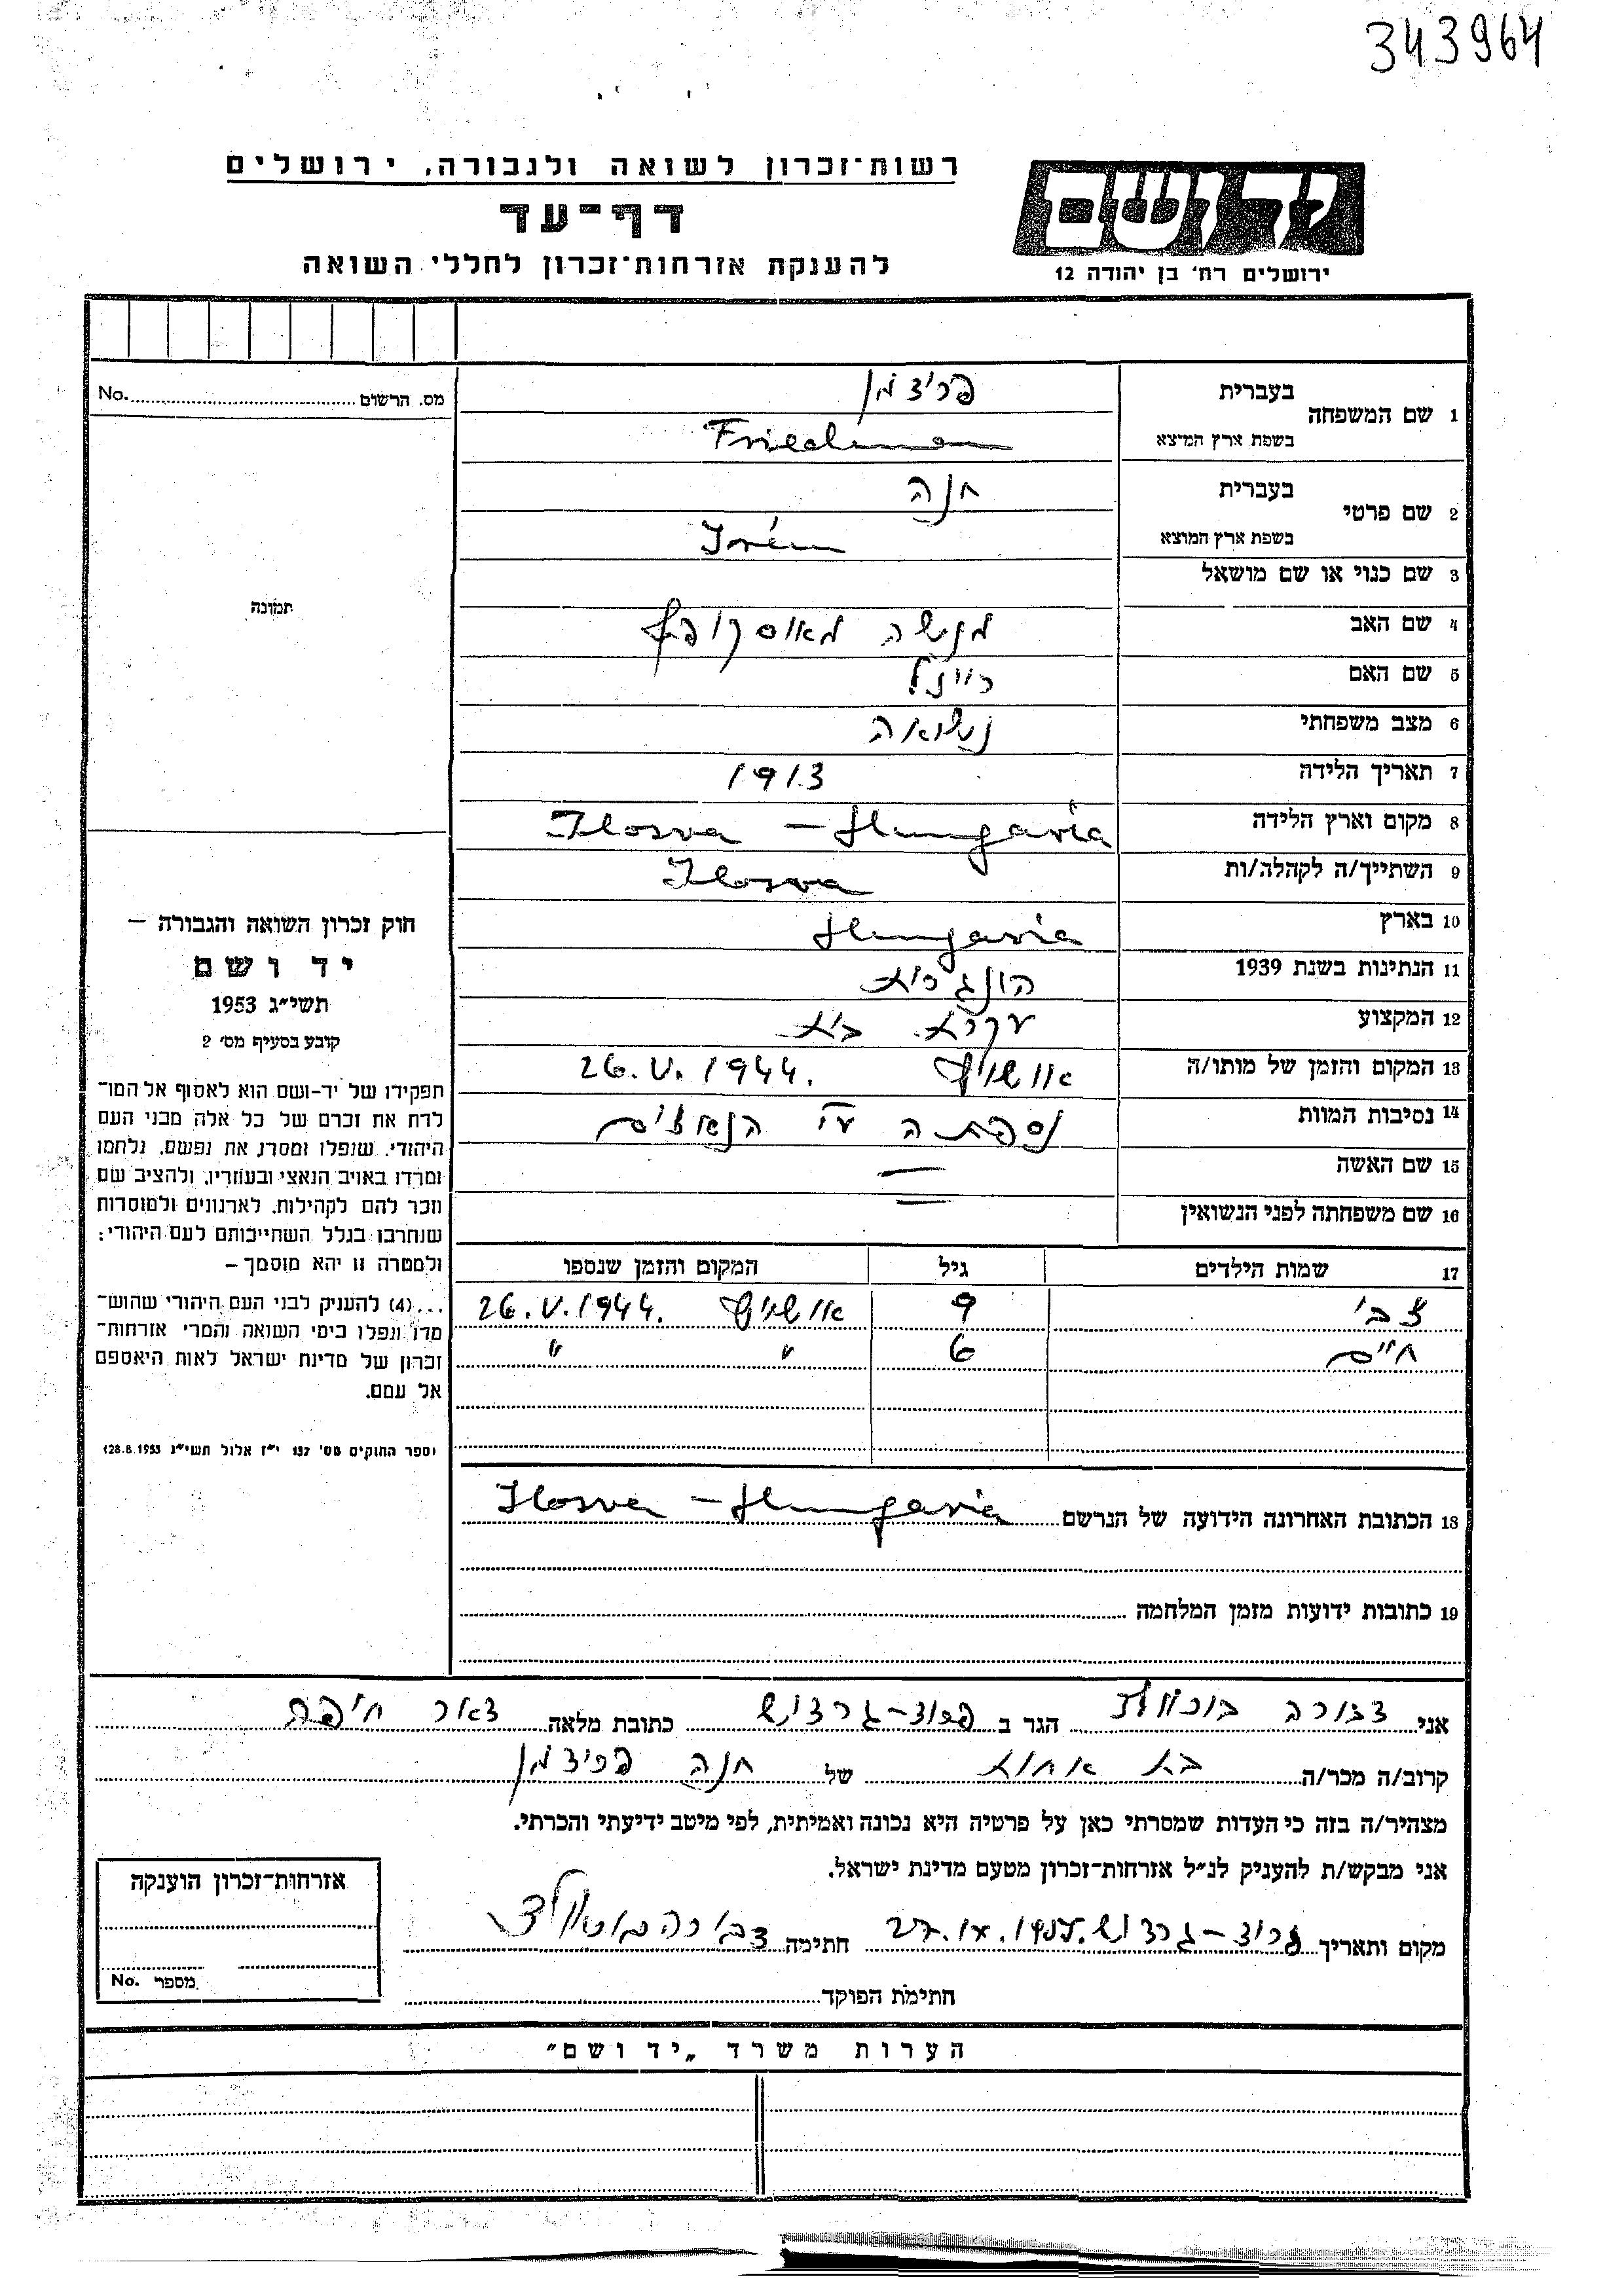 343964
רשות־זכרון לשואה ולגבורה, ירושלים
יד ושם
דף־עד
להענקת אזרחות־זכרון לחללי השואה
ירושלים רח' בן יהודה 12
מס. הרשום No.
1 שם המשפחה
בעברית פרידמן
בשפת ארץ המוצא Friedman
2 שם פרטי
בעברית חנה
בשפת ארץ המוצא Irén
תמונה
3 שם כנוי או שם מושאל
4 שם האב מנשה
5 שם האם ריזל
6 מצב משפחתי נשואה
7 תאריך הלידה 1913
8 מקום וארץ הלידה Ilosva - Hungaria
9 השתייך/ה לקהלה/ות Ilosva
10 בארץ Hungaria
11 הנתינות בשנת 1939 הונגרית
12 המקצוע עקרת בית
13 המקום והזמן של מותו/ה אושויץ 26.V.1944.
14 נסיבות המוות נספתה ע"י הנאצים
15 שם האשה —
16 שם משפחתה לפני הנשואין —
17 שמות הילדים גיל המקום והזמן שנספו
צבי 9 אושויץ 26.V.1944.
חיים 6 " "
חוק זכרון השואה והגבורה —
יד ושם
תשי"ג 1953
קובע בסעיף מס' 2
תפקידו של יד-ושם הוא לאסוף אל המו־
לדת את זכרם של כל אלה מבני העם
היהודי, שנפלו ומסרו את נפשם, נלחמו
ומרדו באויב הנאצי ובעוזריו, ולהציב שם
וזכר להם לקהילות, לארגונים ולמוסדות
שנחרבו בגלל השתייכותם לעם היהודי:
ולמטרה זו יהא מוסמך —
...(4) להעניק לבני העם היהודי שהוש־
מדו ונפלו בימי השואה והמרי אזרחות־
זכרון של מדינת ישראל לאות היאספם
אל עמם.
(ספר החוקים מס' 132 י"ז אלול תשי"ג 28.8.1953)
18 הכתובת האחרונה הידועה של הנרשם Ilosva - Hungaria
19 כתובות ידועות מזמן המלחמה
אני דבורה הגר ב פרוד-גרדוש כתובת מלאה דאר חיפה
קרוב/ה מכר/ה בת אחות של חנה פרידמן
מצהיר/ה בזה כי העדות שמסרתי כאן על פרטיה היא נכונה ואמיתית, לפי מיטב ידיעתי והכרתי.
אני מבקש/ת להעניק לנ"ל אזרחות-זכרון מטעם מדינת ישראל.
מקום ותאריך חתימה דבורה
חתימת הפוקד
אזרחות-זכרון הוענקה
מספר No.
הערות משרד „יד ושם"